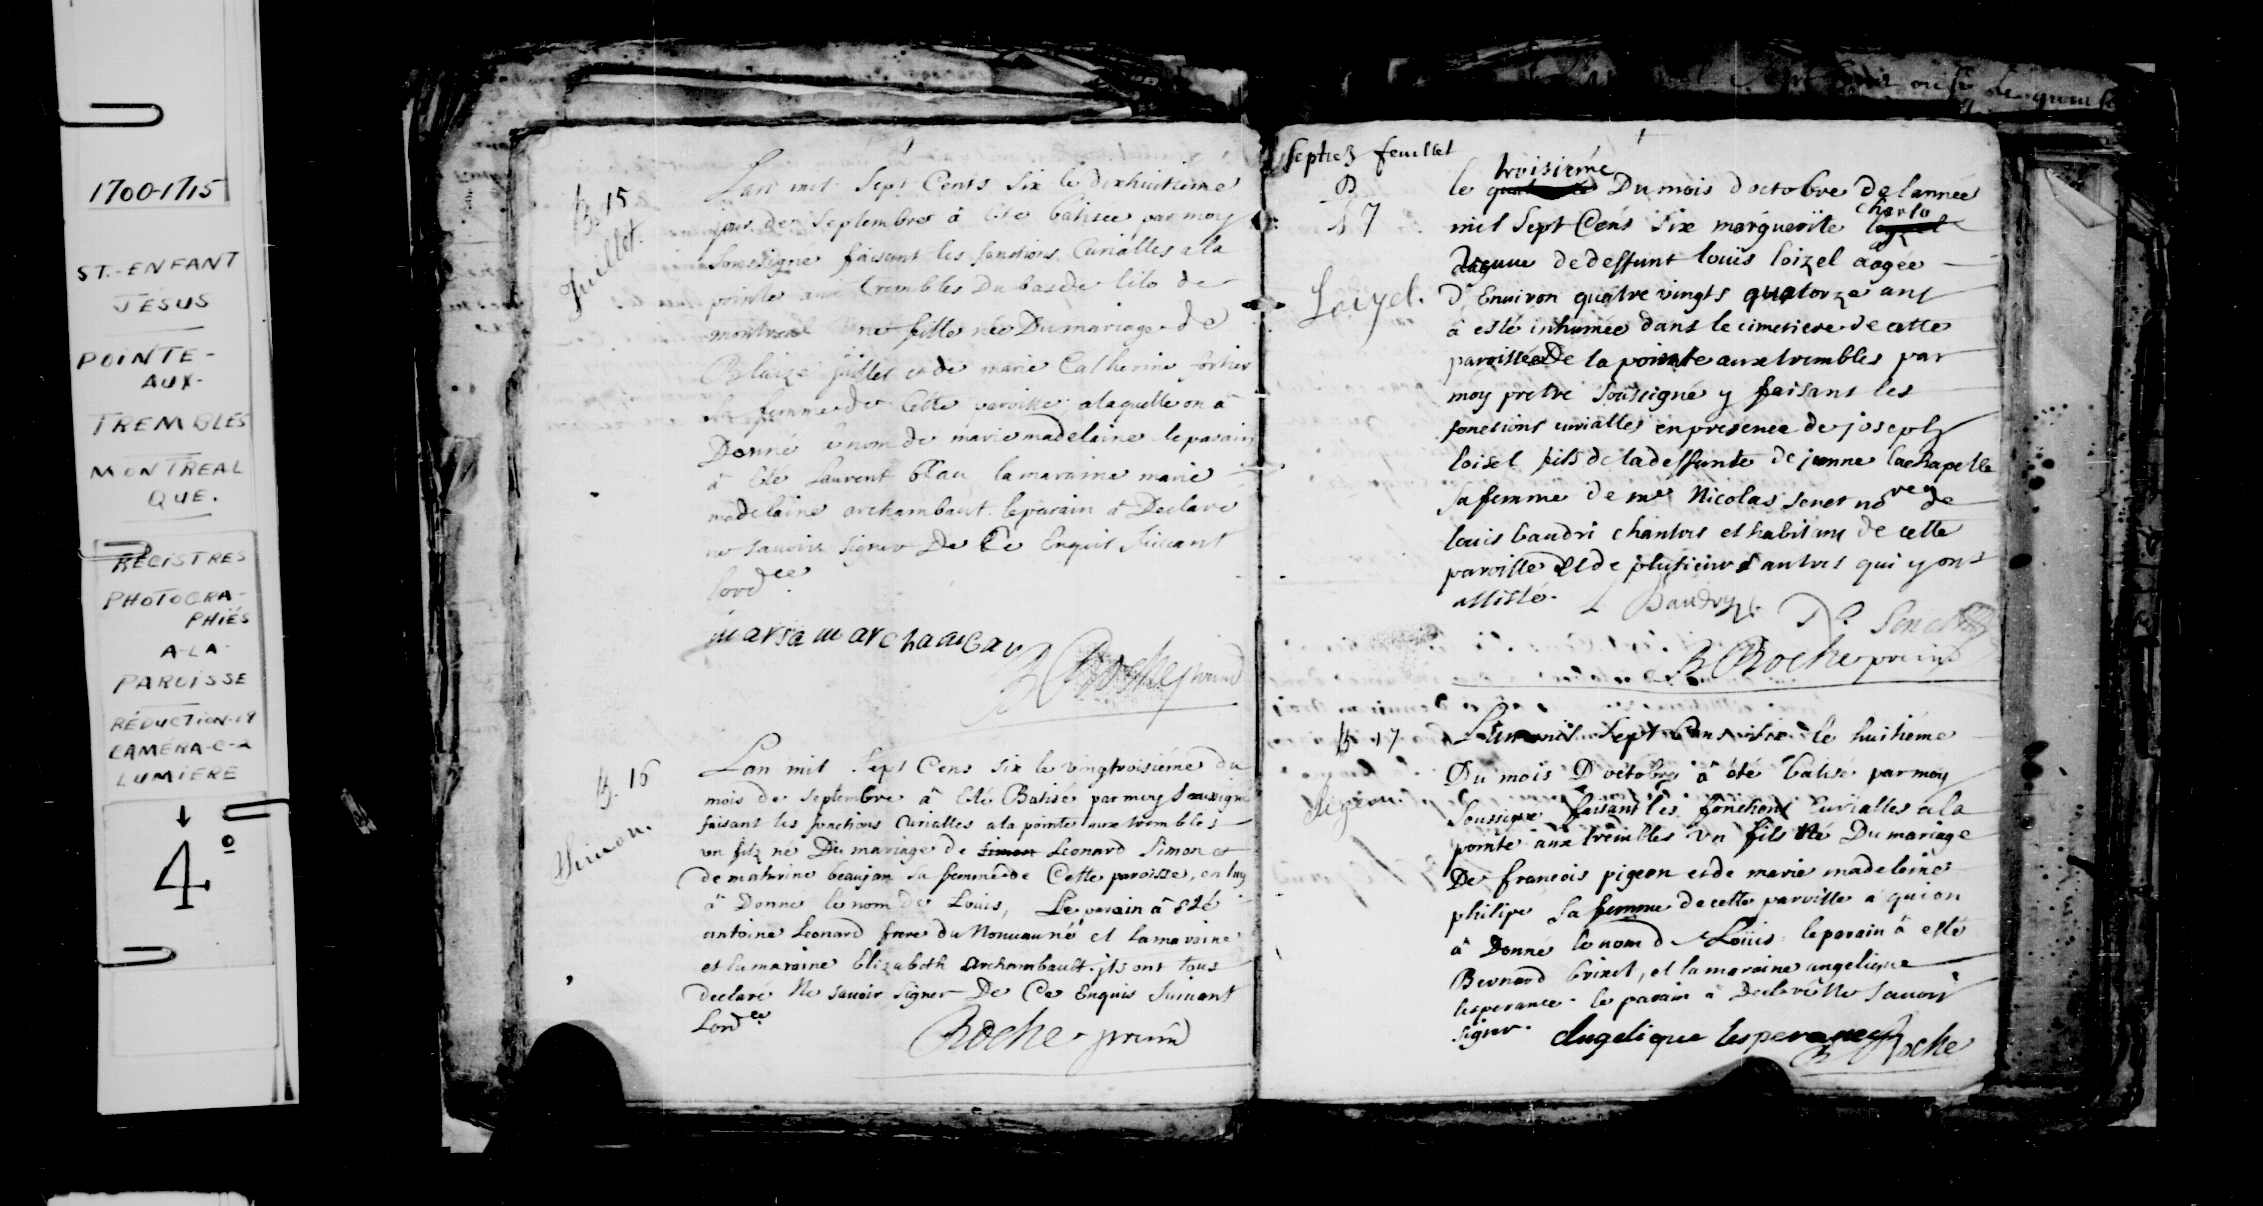 1700-1715
ST.-ENFANT
JÉSUS
POINTE-
AUX-
TREMBLES
MONTREAL
QUE.
REGISTRES
PHOTOGRA-
PHIÉS
A-LA-
PAROISSE
RÉDUCTION-19
CAMÉRA-C-2
LUMIÈRE
4º
B. 15
Juillet.
Lan mil Sept Cents Six le dixhuitieme
jour de Septembre à Eté batisée par moy
Soussigné faisant les fonctions Curialles a la
pointe aux trembles Du bas de lile de
montreal Une fille née Du mariage de
Blaize juillet et de marie Catherine fortier
sa femme de Cette paroisse, a laquelle on à
Donné le nom de marie madelaine le parain
à Eté Laurent la maraine marie
madelaine archambaut. le parain à Declaré
ne savoir signer De Ce Enquit Suivant
lordce.
Roche prind
B. 16
Simon.
Lan mil Sept Cens Six le vingtroisiéme du
mois de Septembre à Eté Batisé par moy Soussigné
faisant les fonctions Curialles a la pointe aux trembles
un filz né Du mariage de simon Leonard Simon et
de mathurine beaujan sa femme de Cette paroisse, on luy
à Donné le nom de Louis, Le parain à Eté
antoine Leonard frere du Nouveau né et la maraine
et la maraine Elizabeth Archambault. ils ont tous
declaré Ne savoir signer De Ce Enquis Suivant
Lordce
Roche prind
feuillet
17
Loyzel.
troisiéme
le Du mois doctobre De lannée
mil Sept Cens Six marguerite charlo
veuve de deffunt louis loizel aagée
D'Environ quatre vingts quatorze ans
à esté inhumée dans le cimetiere de cette
paroisse De la pointe aux trembles par
moy pretre Soussigné y faisant les
fonctions curialles en presence de joseph
loisel fils de la deffunte de jeanne lachapelle
sa femme de me Nicolas senet de
louis baudri chantres et habitans de cette
paroisse et de plusieurs autres qui y ont
assisté.
L Baudry. Senet
B Roche prind
B. 17
pigeon.
Lan mil Sept Cens Six le huitiéme
Du mois D'octobre à été batisé par moy
Soussigné faisant les fonctions Curialles a la
pointe aux trembles un fils Né Du mariage
De francois pigeon et de marie madelaine
philipe sa femme de cette paroisse a qui on
à Donné le nom de Loüis le parain à esté
Bernard brinet, et la maraine angelique
lesperance. le parain à Declaré Ne savoir
signer.
Angelique lesperance
B Roche